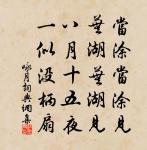 當涂當涂見
蕪湖蕪湖見
八月十五夜
一似沒柄扇
詠月詞典網集